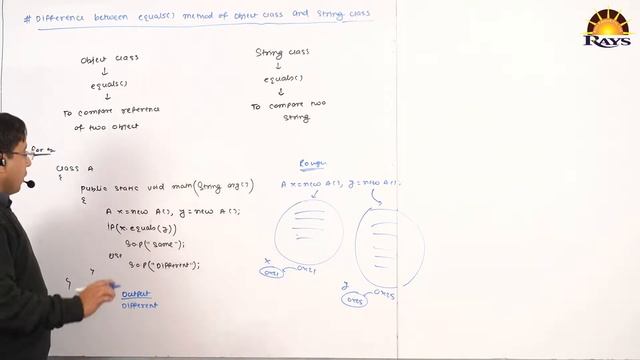 # Difference between equals() method of Object class and String class
RAYS
Object class
↓
equals()
↓
To compare reference
of two object
String class
↓
equals()
↓
To compare two
String
For ex
class A
{
public static void main(String arg[])
{
A x=new A(), y=new A();
if(x.equals(y))
S.O.P("Same");
else
S.O.P("Different");
}
}
Output
Different
Rough
A x=new A(), y=new A();
x
0x21
0x21
y
0x25
0x25